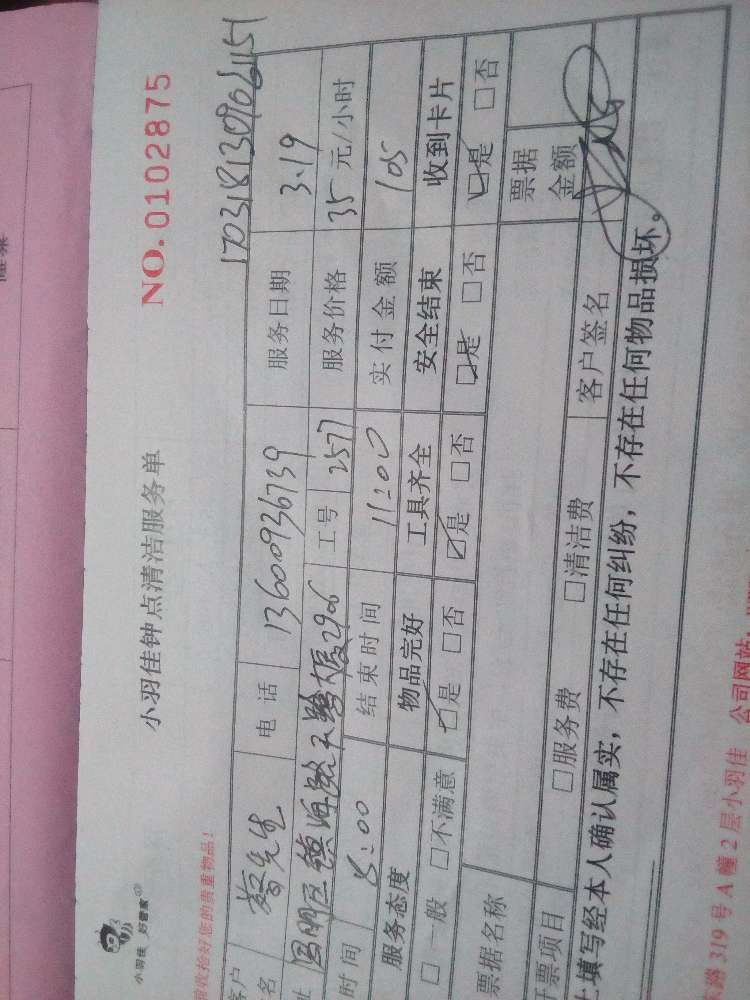 小羽佳 好管家
小羽佳钟点清洁服务单
NO.0102875
收拾好您的贵重物品!
170318130906151
客户 蔡先生 电话 13600936739 服务日期 3.19
2906 工号 2577 服务价格 35元/小时
时间 8:00 结束时间 11:00 实付金额 105
服务态度 物品完好 工具齐全 安全结束 收到卡片
□一般 □不满意 ☑是 □否 ☑是 □否 ☑是 □否 ☑是 □否
票据名称 票据金额
开票项目 □服务费 □清洁费 客户签名
填写经本人确认属实,不存在任何纠纷,不存在任何物品损坏。
路319号A幢2层小羽佳 公司网站